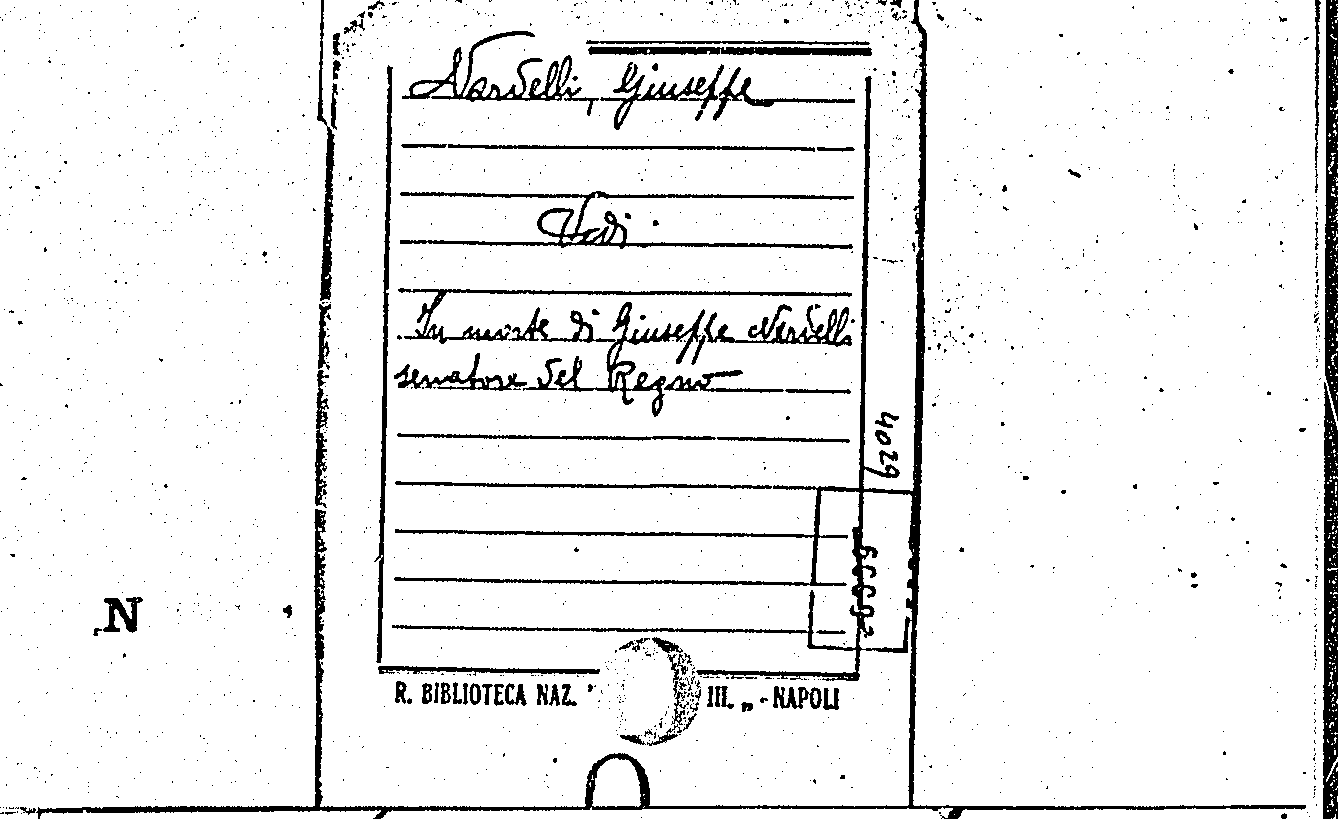 Nardelli, Giuseppe
Vedi
In morte di Giuseppe Nardelli
senatore del Regno
4029
N
R. BIBLIOTECA NAZ. " III. „ - NAPOLI